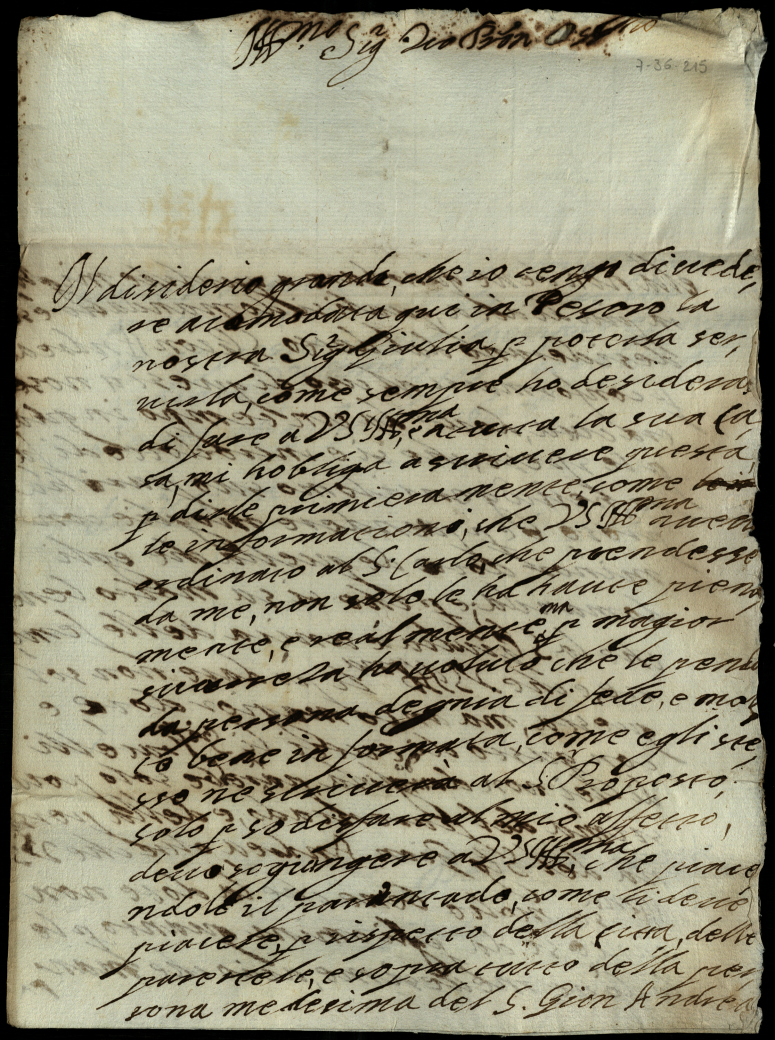 Ill.mo Sig.r Zio P̄ron Oss.mo
7-36-215
Il disiderio grande, che io tengo di uede,
re acomodata qui in Pesaro la
nostra Sig.ra Giulia p poterla ser,
uirla, come sempre ho desidera
di fare a VS Ill.ma, e a tutta la sua Ca,
sa, mi hobliga a scriuere questa,
p dirle primiera mente, come
le informationi, che VS Ill.ma auea
ordinato al S. Carlo, che prendesse
da me, non solo le ha haute piena,
mente, e real mente, ma p magior
sicurezza ho uoluto che le prenda
da persona degnia di fede, e mol,
to bene in formata, come egli ste,
sso ne scriuerà al S. Proposto,
solo p sodisfare al mio affetto,
deuo sogiungere a VS Ill.ma, che piace
ndole il parentado, come li deue
piacere, p rispetto della Citta, delle
parentele, e sopra tutto della per
sona medesima del S. Gion Andrea